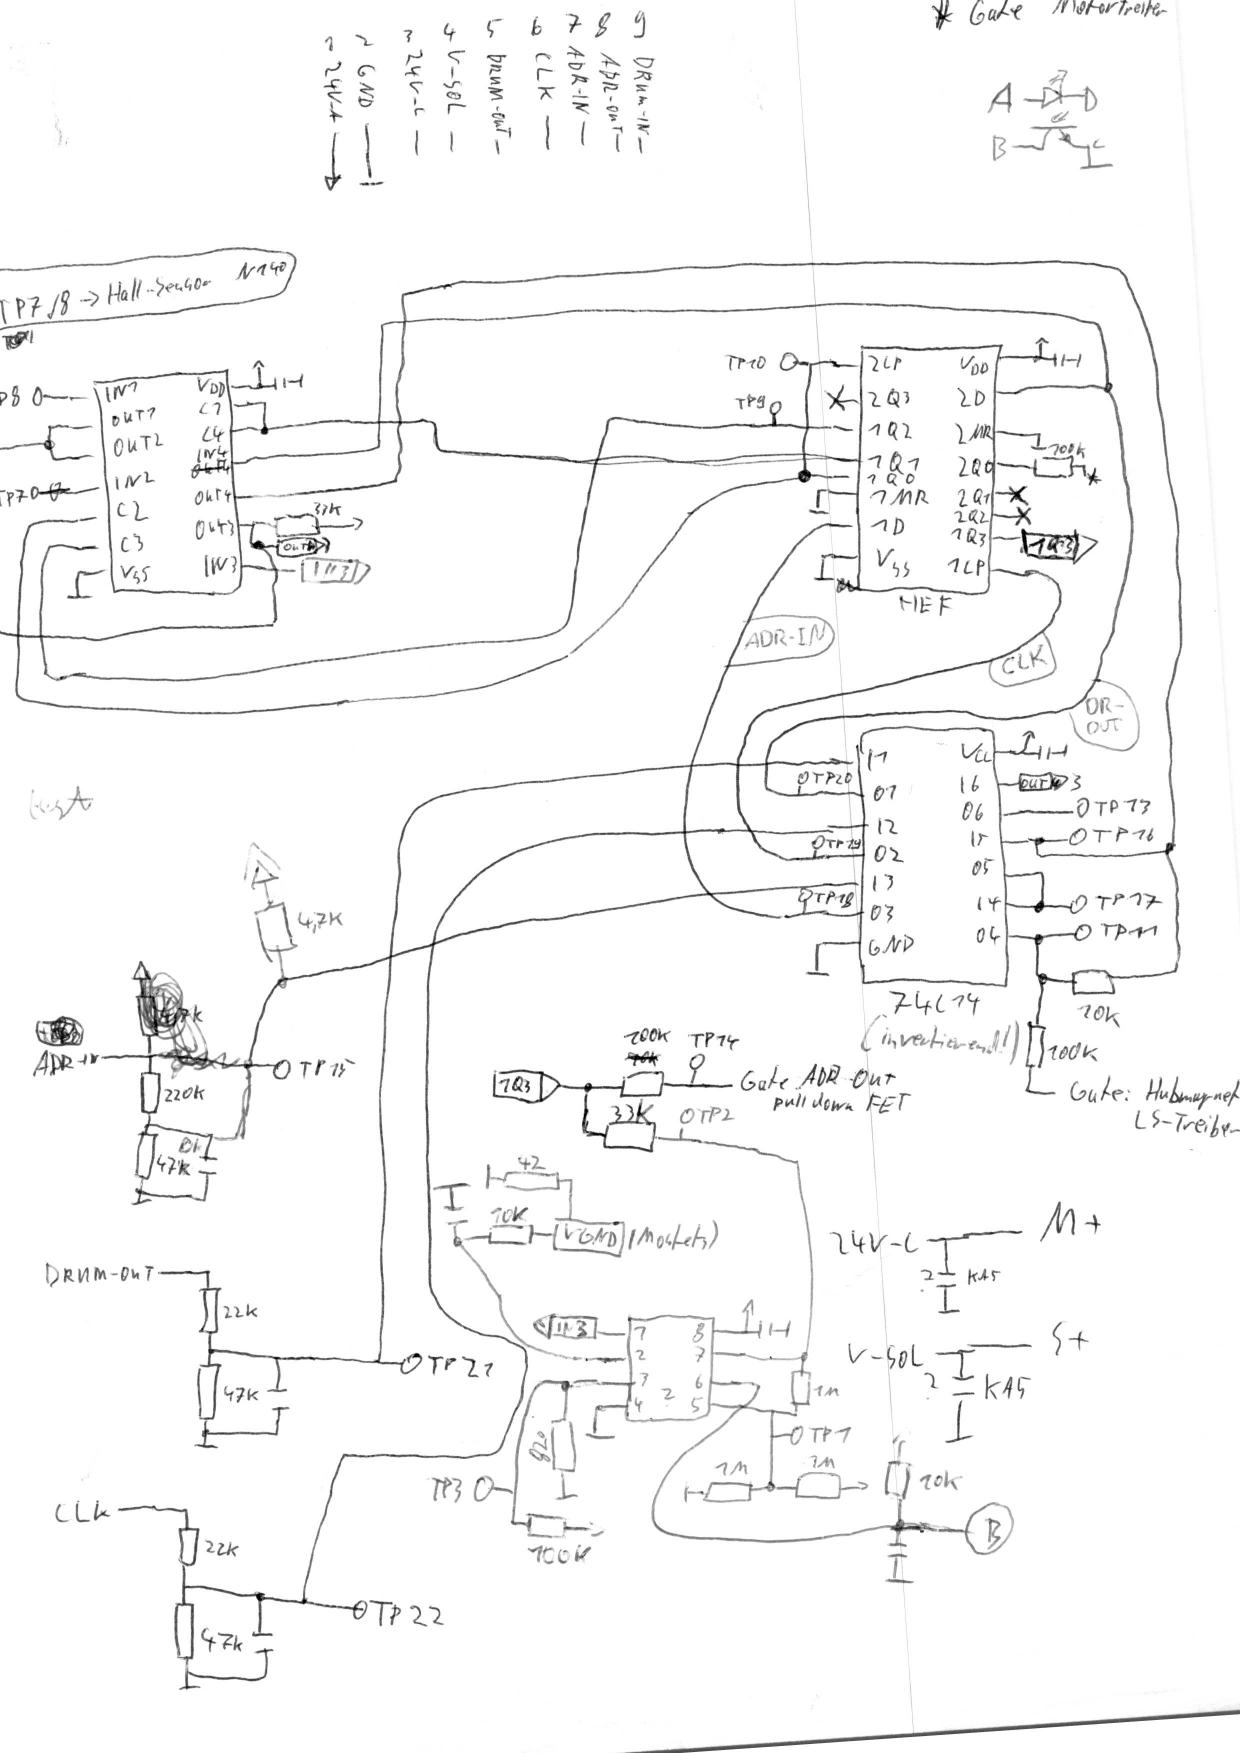 * Gate Motortreiber
1 24V-A
2 GND
3 24V-C
4 V-SOL
5 DRUM-OUT
6 CLK
7 ADR-IN
8 ADR-OUT
9 DRUM-IN
A D
B C
TP7/8 -> Hall-Sensor N140
P8
IN1
OUT1
OUT2
IN2
C2
C3
VSS
VDD
C1
C4
IN4
OUT4
OUT3
IN3
TP7
33K
IN3
TP10
TP9
2LP
2Q3
1Q2
1Q1
1Q0
1MR
1D
VSS
VDD
2D
2MR
2Q0
2Q1
2Q2
1Q3
1LP
100K
*
1Q3
HEF
ADR-IN
CLK
DR-OUT
TP20
TP19
TP18
I1
O1
I2
O2
I3
O3
GND
VCC
I6
O6
I5
O5
I4
O4
3
TP13
TP16
TP17
TP11
74C14
(invertierend!)
10K
100K
Gate: Hubmagnet
LS-Treiber
4,7K
4,7K
ADR-IN
TP15
220K
47K
1Q3
100K
TP14
Gate ADR-Out
pull down FET
33K
TP2
42
10K
VGND
(Mosfets)
24V-C
M+
?
KA5
V-SOL
S+
?
KA5
DRUM-OUT
22K
47K
TP21
IN3
1
2
3
4
8
7
6
5
2
1M
820
TP1
1M
1M
TP3
100K
10K
B
CLK
22K
47K
TP22